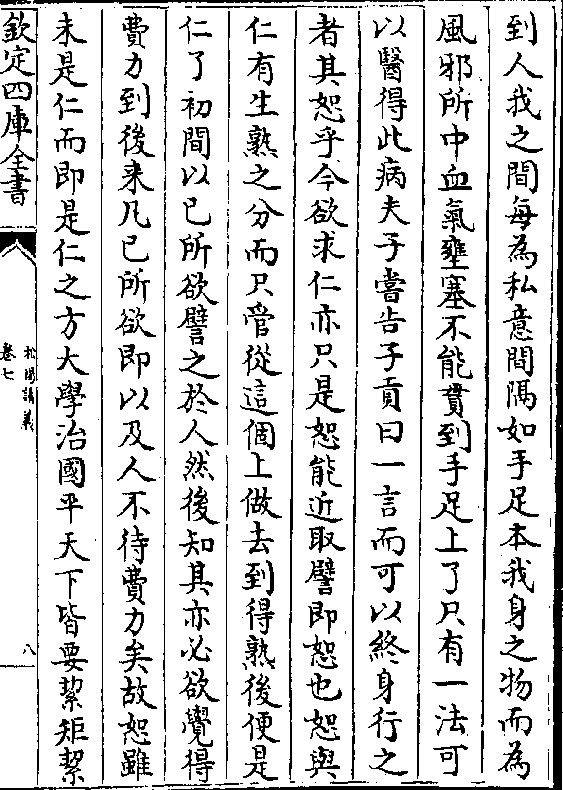 到人我之間每為私意間隔如手足本我身之物而為
風邪所中血氣壅塞不能貫到手足上了只有一法可
以醫得此病夫子嘗告子貢曰一言而可以終身行之
者其恕乎今欲求仁亦只是恕能近取譬即恕也恕與
仁有生熟之分而只管從這個上做去到得熟後便是
仁了初間以已所欲譬之於人然後知其亦必欲覺得
費力到後来凡已所欲即以及人不待費力矣故恕雖
未是仁而即是仁之方大學治國平天下皆要絜矩絜
欽定四庫全書
松陽講義
卷七
八